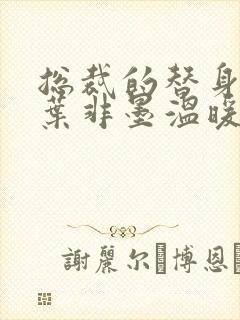 总裁的替身
葉非墨温暖
謝麗尔·博恩